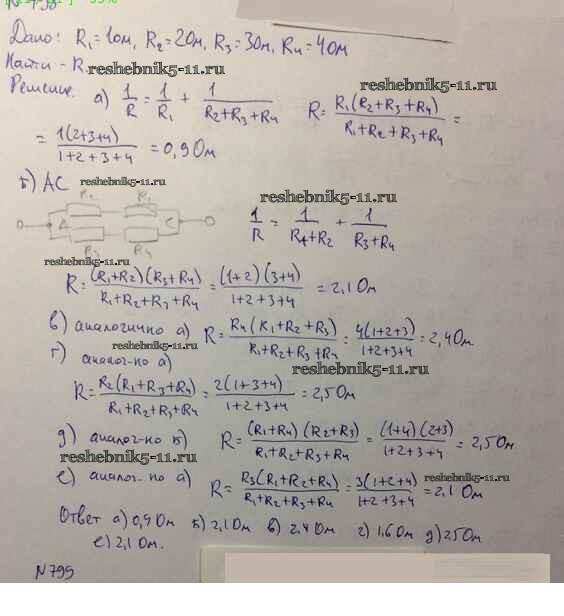 Дано: R₁=1Ом, R₂=2Ом, R₃=3Ом, R₄=4Ом
Найти - R. reshebnik5-11.ru
Решение. а) 1/R = 1/R₁ + 1/(R₂+R₃+R₄) R = R₁(R₂+R₃+R₄)/(R₁+R₂+R₃+R₄) =
reshebnik5-11.ru
= 1(2+3+4)/(1+2+3+4) = 0,9 Ом
б) АС reshebnik5-11.ru
reshebnik5-11.ru
A C 1/R = 1/(R₁+R₂) + 1/(R₃+R₄)
R₄
reshebnik5-11.ru
R = (R₁+R₂)(R₃+R₄)/(R₁+R₂+R₃+R₄) = (1+2)(3+4)/(1+2+3+4) = 2,1 Ом
в) аналогично а) R = R₄(R₁+R₂+R₃)/(R₁+R₂+R₃+R₄) = 4(1+2+3)/(1+2+3+4) = 2,4Ом
reshebnik5-11.ru
г) аналог-но а)
reshebnik5-11.ru
R = R₂(R₁+R₃+R₄)/(R₁+R₂+R₃+R₄) = 2(1+3+4)/(1+2+3+4) = 2,5Ом
д) аналог-но б) R = (R₁+R₄)(R₂+R₃)/(R₁+R₂+R₃+R₄) = (1+4)(2+3)/(1+2+3+4) = 2,5Ом
reshebnik5-11.ru
е) аналог-но а) R = R₃(R₁+R₂+R₄)/(R₁+R₂+R₃+R₄) = 3(1+2+4)/(1+2+3+4) = 2,1 Ом
reshebnik5-11.ru
Ответ а) 0,9 Ом б) 2,1 Ом в) 2,4 Ом г) 1,6 Ом д) 2,5 Ом
е) 2,1 Ом.
N 799